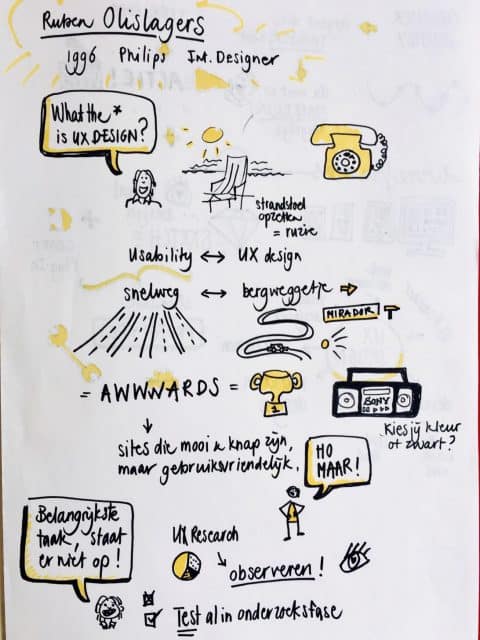 Ruben Olislagers
1996 Philips Int. Designer
What the *
is UX DESIGN?
strandstoel
opzetten
= ruzie
Usability ↔ UX design
snelweg ↔ bergweggetje ⇨
MIRADOR
= AWWWARDS =
1
SONY
Kies jij kleur
of zwart?
sites die mooi & knap zijn,
maar gebruiksvriendelijk.
HO
MAAR!
Belangrijkste
taak, staat
er niet op!
UX Research
observeren!
Test al in onderzoeksfase